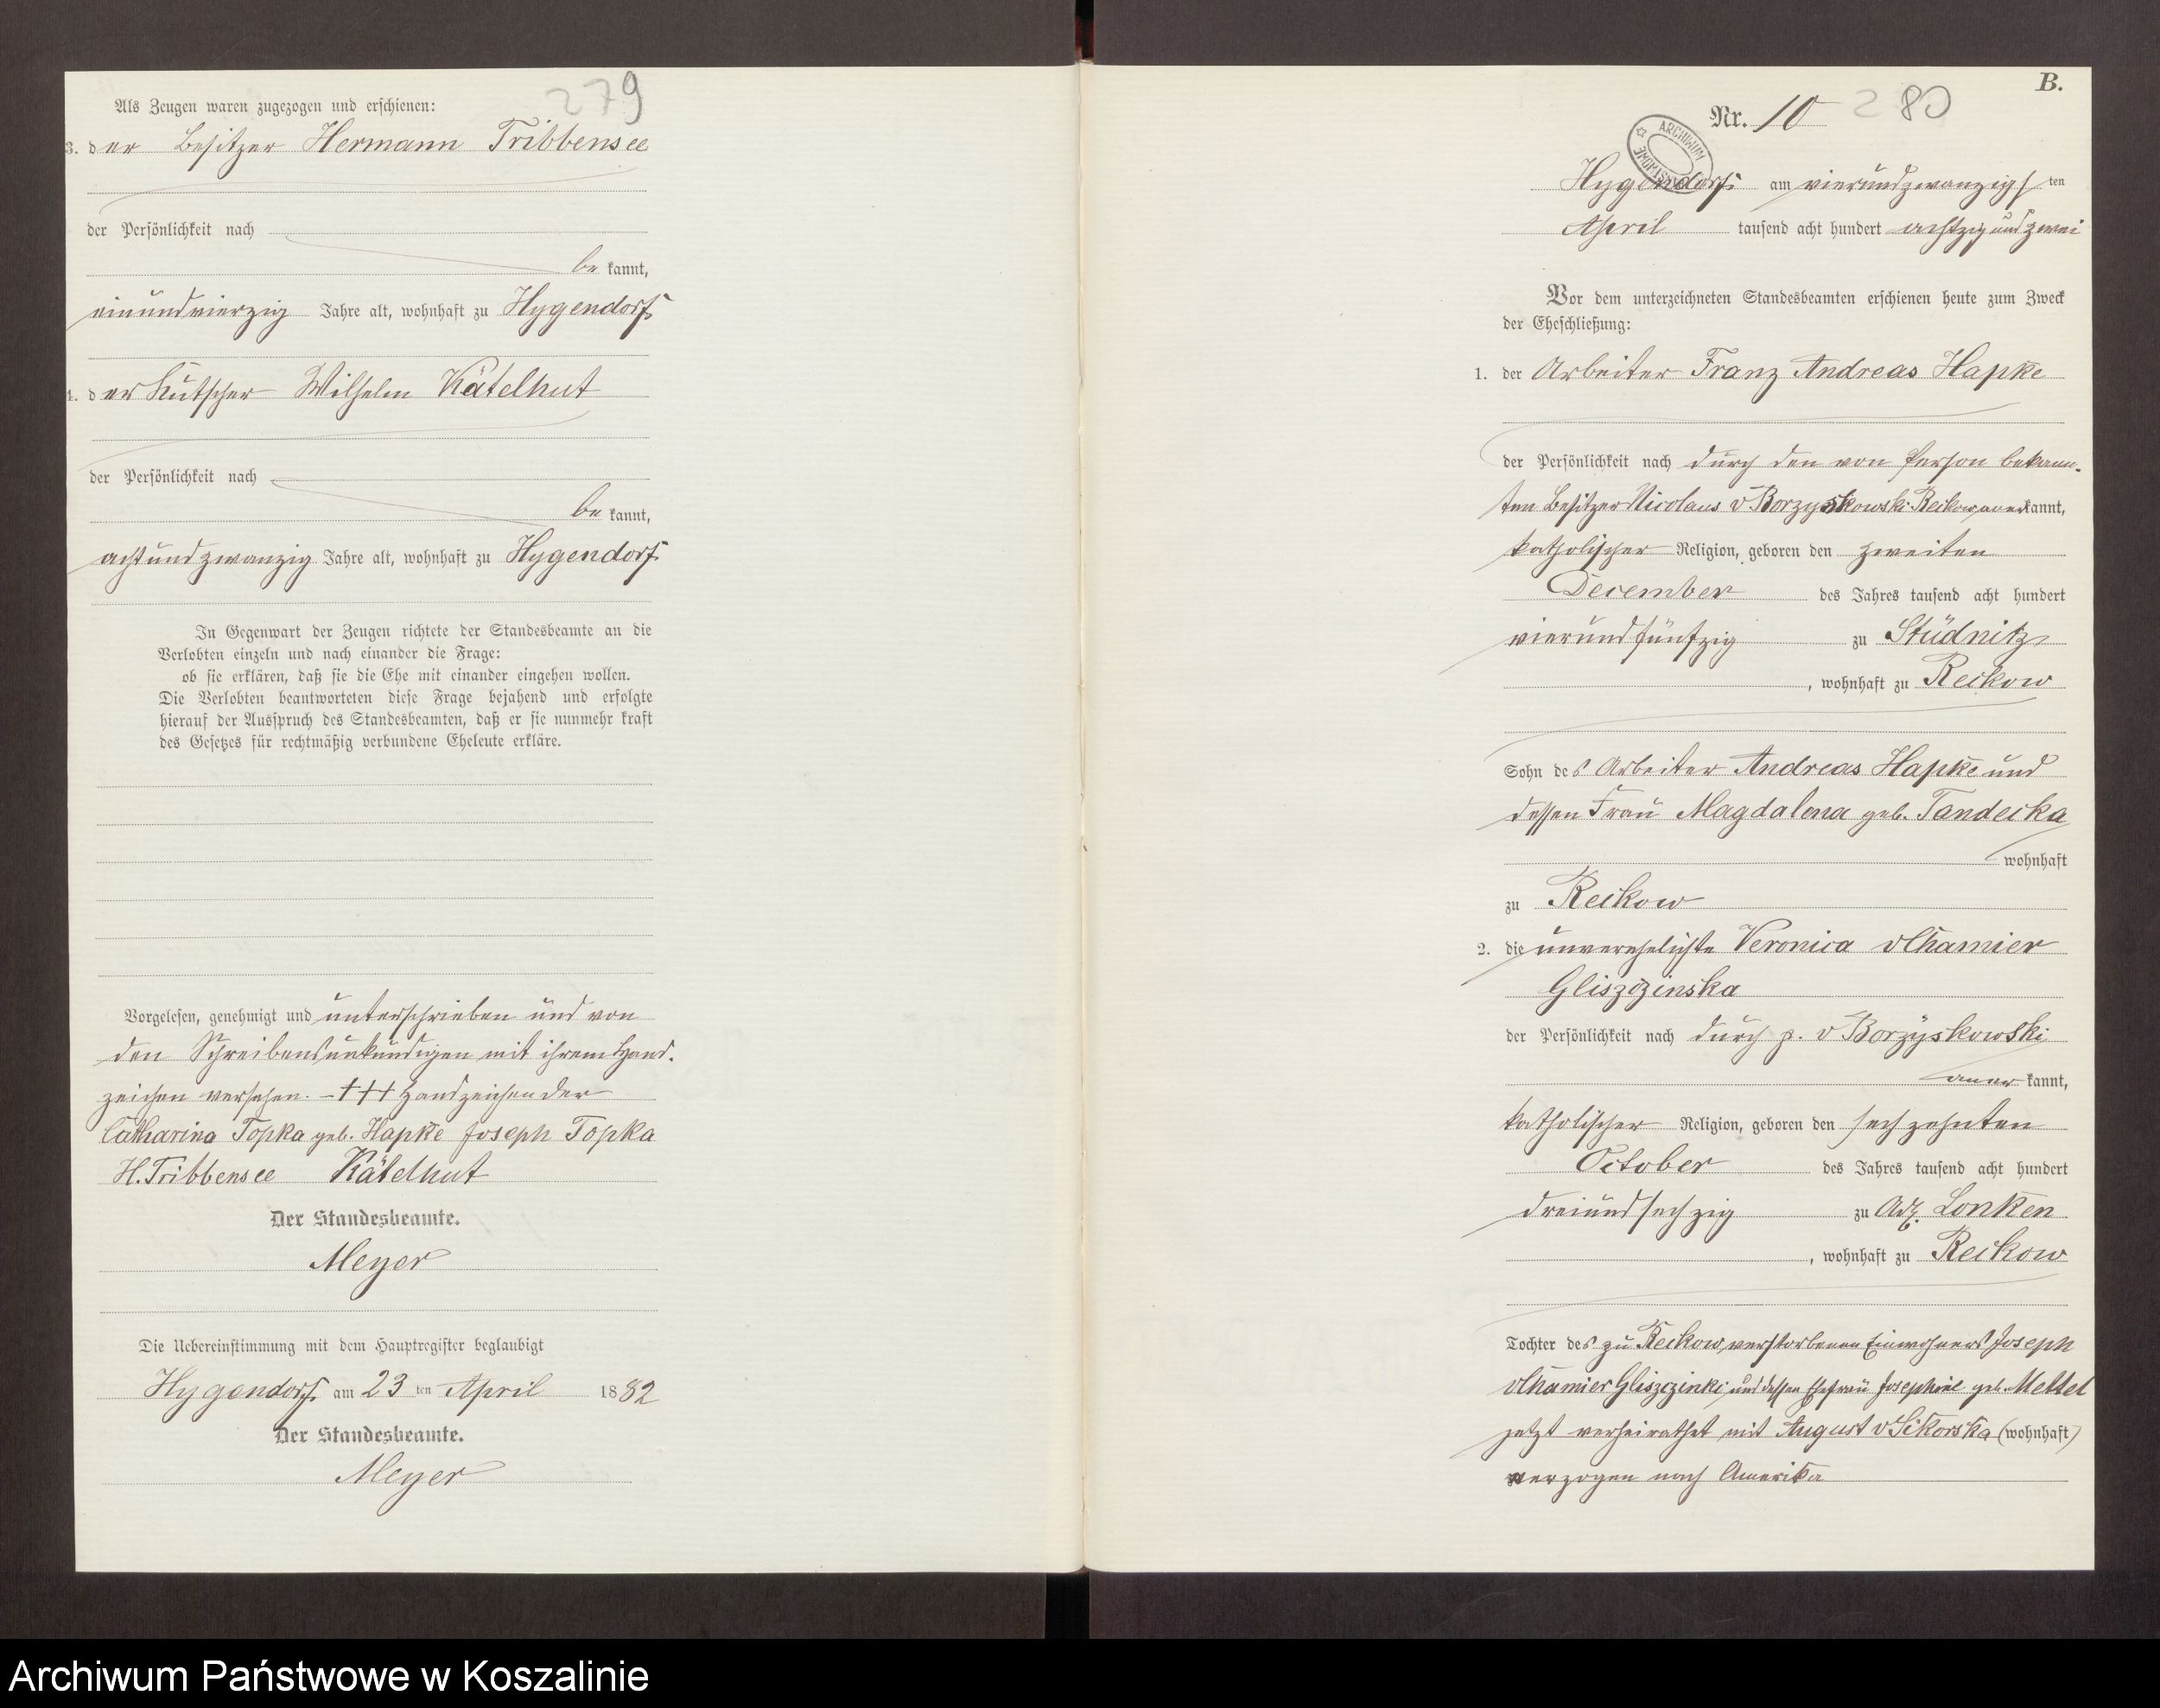 279
Als Zeugen waren zugezogen und erschienen:
3. der Besitzer Hermann Tribbensee
der Persönlichkeit nach
be kannt,
einundvierzig Jahre alt, wohnhaft zu Hygendorf
4. der Kutscher Wilhelm Kätelhut
der Persönlichkeit nach
be kannt,
achtundzwanzig Jahre alt, wohnhaft zu Hygendorf
In Gegenwart der Zeugen richtete der Standesbeamte an die
Verlobten einzeln und nach einander die Frage:
ob sie erklären, daß sie die Ehe mit einander eingehen wollen.
Die Verlobten beantworteten diese Frage bejahend und erfolgte
hierauf der Ausspruch des Standesbeamten, daß er sie nunmehr kraft
des Gesetzes für rechtmäßig verbundene Eheleute erkläre.
Vorgelesen, genehmigt und unterschrieben und von
den Schreibensunkundigen mit ihrem Hand-
zeichen versehen. – +++ Handzeichen der
Catharina Topka geb. Hapke Joseph Topka
H. Tribbensee Kätelhut
Der Standesbeamte.
Meyer
Die Uebereinstimmung mit dem Hauptregister beglaubigt
Hygendorf am 23 ten April 1882
Der Standesbeamte.
Meyer
B.
Nr. 10 280
ARCHIWUM PAŃSTWOWE
Hygendorf am vierundzwanzigsten
April tausend acht hundert achtzig und zwei
Vor dem unterzeichneten Standesbeamten erschienen heute zum Zweck
der Eheschließung:
1. der Arbeiter Franz Andreas Hapke
der Persönlichkeit nach durch den von Person bekann-
ten Besitzer Nicolaus v Borzyskowski Reckow anerkannt,
katholischer Religion, geboren den zweiten
December des Jahres tausend acht hundert
vierundfünfzig zu Stüdnitz
, wohnhaft zu Reckow
Sohn des Arbeiter Andreas Hapke und
dessen Frau Magdalena geb. Tandecka
wohnhaft
zu Reckow
2. die unverehelichte Veronica v Chamier
Gliszczinska
der Persönlichkeit nach durch p. v Borzyskowski
aner kannt,
katholischer Religion, geboren den sechzehnten
October des Jahres tausend acht hundert
dreiundsechzig zu Adl. Lonken
, wohnhaft zu Reckow
Tochter des zu Reckow verstorbenen Einwohners Joseph
v Chamier Gliszczinki und dessen Ehefrau Josephine geb. Mellel
jetzt verheirathet mit August v Sikorska (wohnhaft)
verzogen nach Amerika
Archiwum Państwowe w Koszalinie